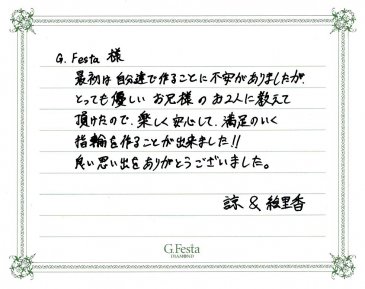 G. Festa 様
最初は自分達で作ることに不安がありましたが、
とっても優しいお兄様のお2人に教えて
頂けたので、楽しく安心して、満足のいく
指輪を作ることが出来ました!!
良い思い出をありがとうございました。
諒 & 絵里香
G.Festa
DIAMOND